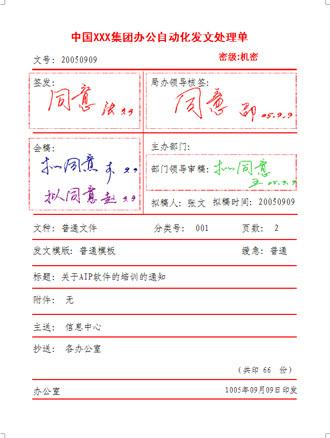 中国XXX集团办公自动化发文处理单
文号: 20050909 密级:机密
签发: 局办领导核签:
同意 9.9 同意 05.9.9
会稿: 主办部门:
拟同意 9.9 部门领导审稿: 拟同意
拟同意 赵 9.9 05.9.9
拟稿人: 张文 拟稿时间: 20050909
文种: 普通文件 分类号: 001 页数: 2
发文模版: 普通模板 缓急: 普通
标题: 关于AIP软件的培训的通知
附件: 无
主送: 信息中心
抄送: 各办公室
(共印 66 份)
办公室 1005年09月09日印发